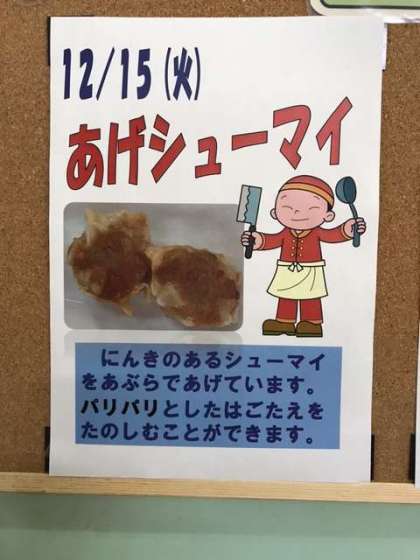 12/15(火)
あげシューマイ
にんきのあるシューマイ
をあぶらであげています。
パリパリとしたはごたえを
たのしむことができます。